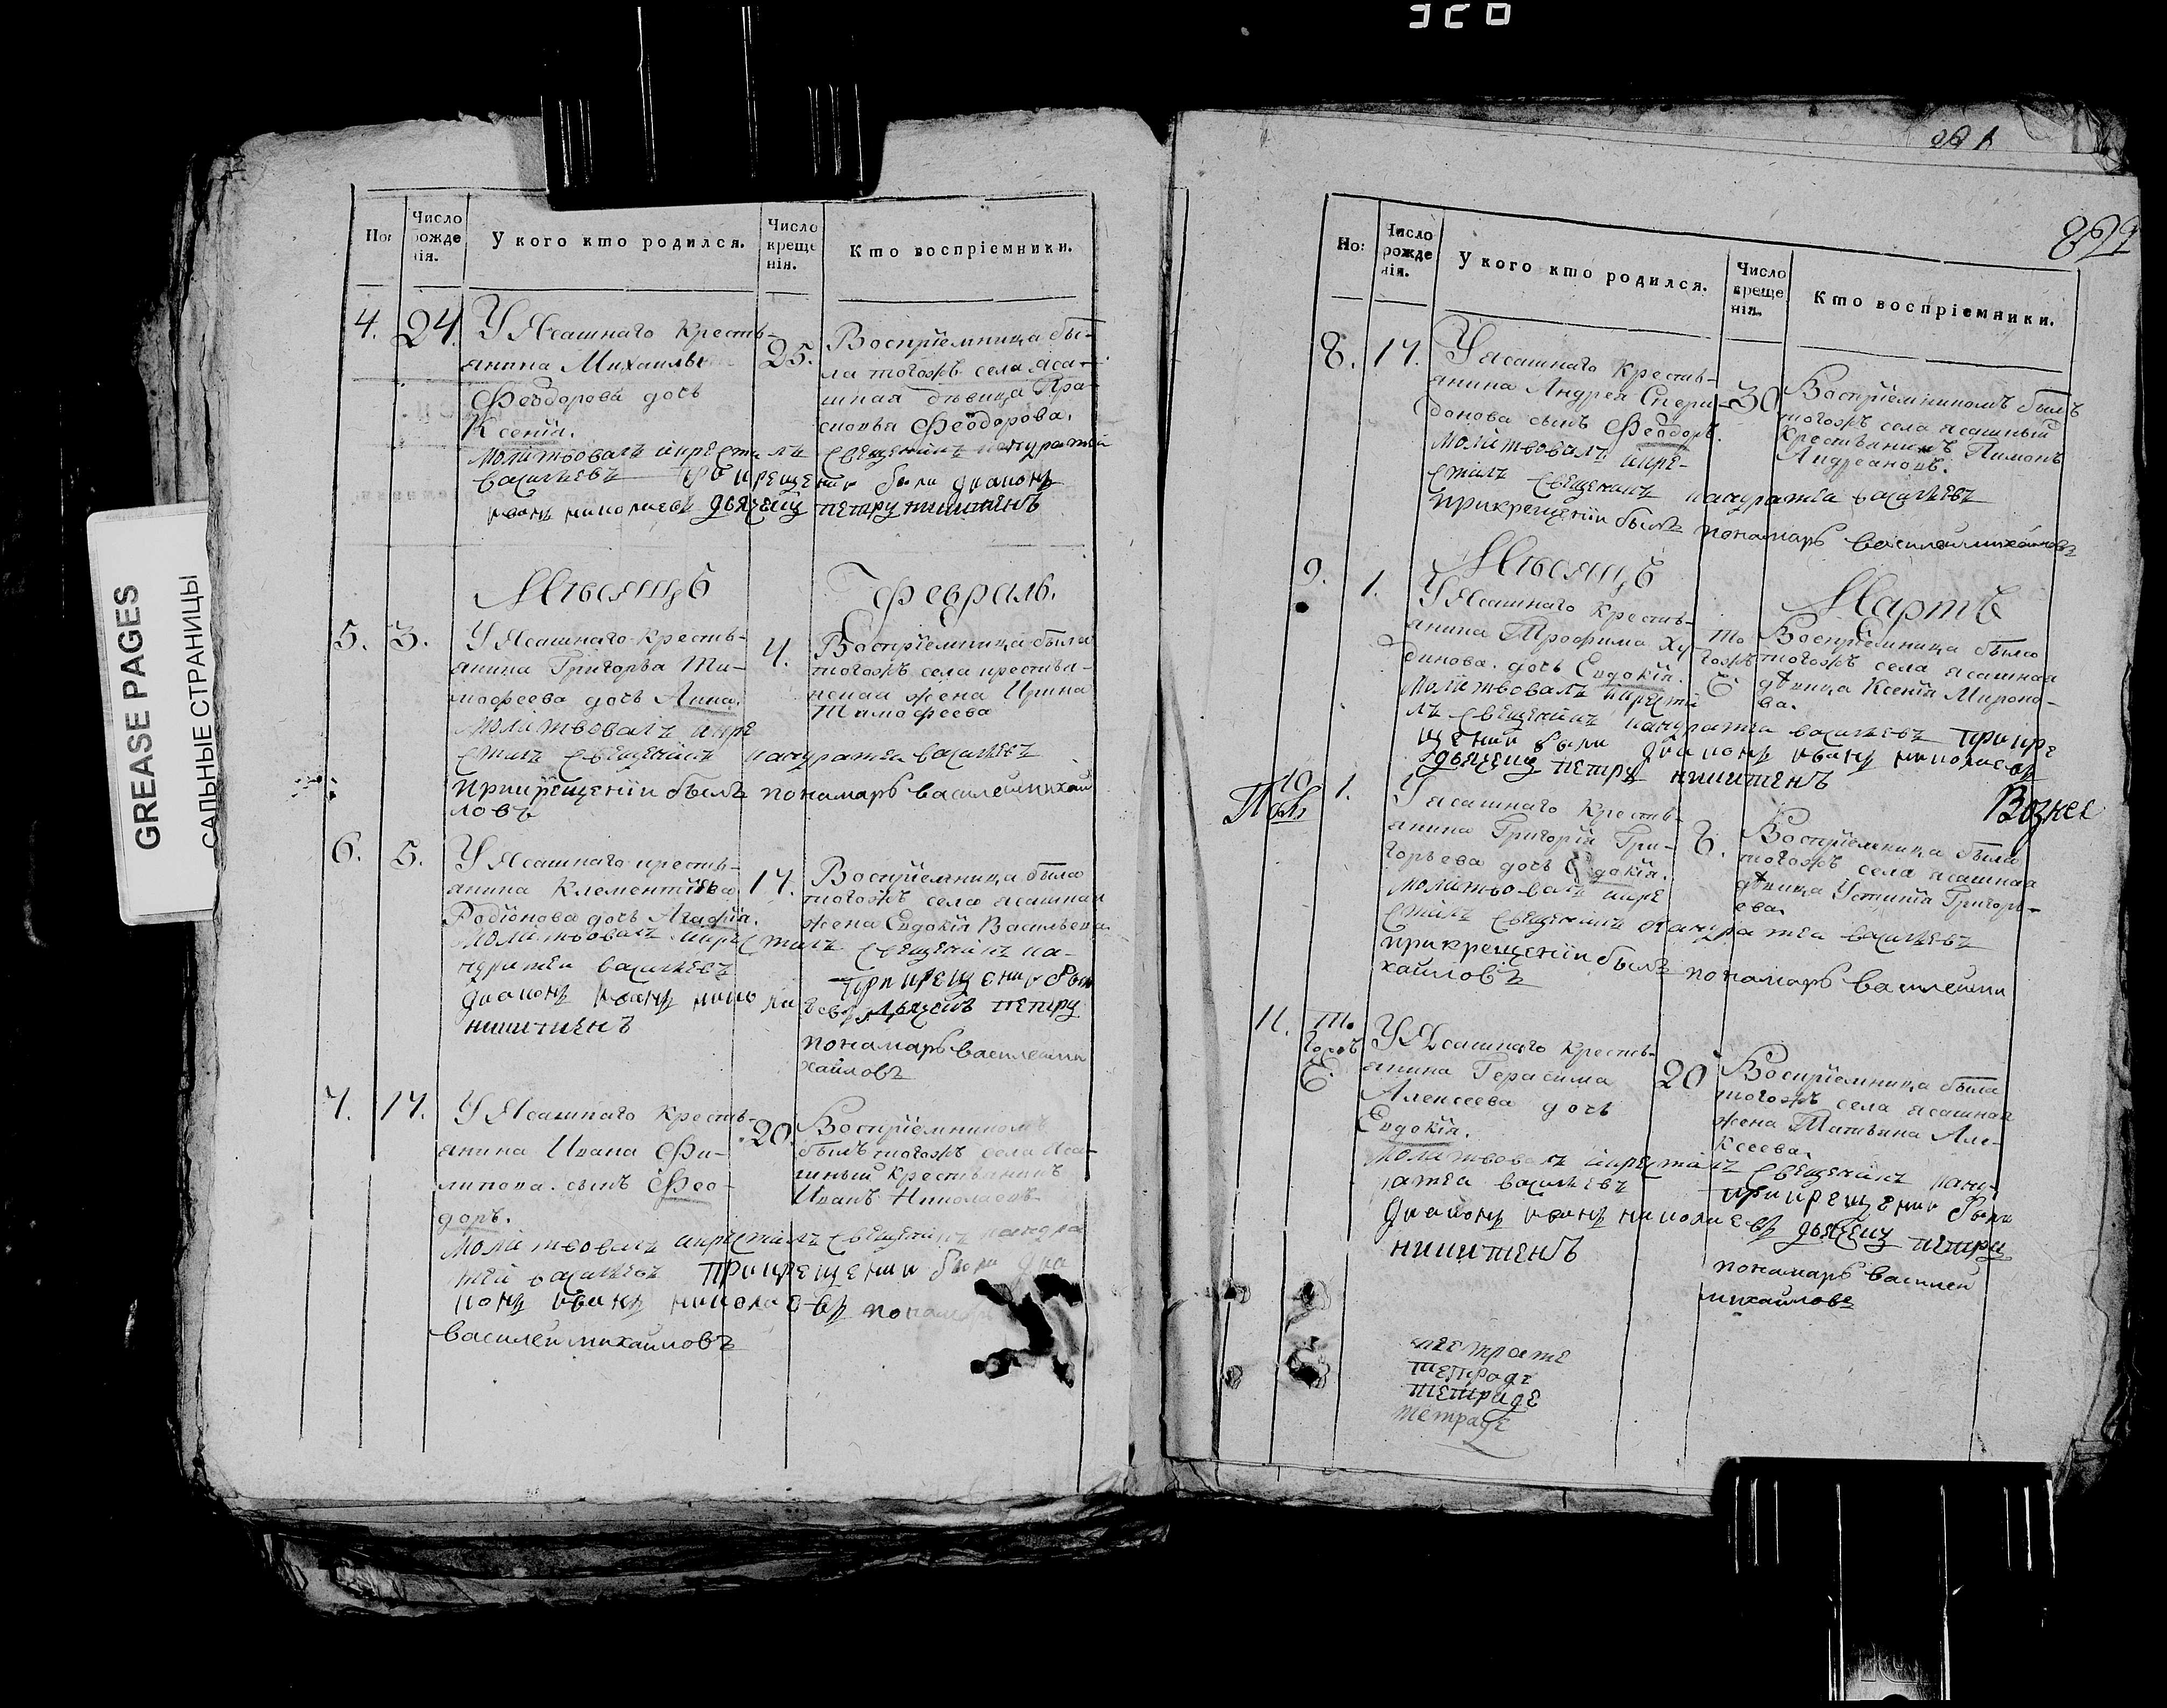 GREASE PAGES
САЛЬНЫЕ СТРАНИЦЫ
Но:
Число рожденія.
У кого кто родился.
Число крещенія.
Кто воспріемники.
4. 24.
У Ясашнаго Кресть-
янина Михаилы
Феодорова дочь
Ксенія.
Молитвовалъ и крестилъ священникъ
васильевъ При крещении были диаконъ
иванъ николаевъ дьячекъ петръ никитинъ
25.
Воспріемница бы-
ла тогожъ села яса-
шная дѣвица Пра-
сковья Феодорова.
Мѣсяцъ Февраль.
5. 3.
У Ясашнаго Кресть-
янина Григорья Ти-
мофеева дочь Анна.
Молитвовалъ и кре
стилъ священникъ васильевъ
При крещении былъ пономарь василей михай
ловъ
4.
Воспріемница была
тогожъ села крестья-
нская жена Ирина
Тимофеева
6. 5.
У Ясашнаго кресть-
янина Клементьева
Родіонова дочь Агафія.
Молитвовалъ и крестилъ священникъ
васильевъ При крещении были
диаконъ иванъ николаевъ дьячекъ петръ
никитинъ
пономарь василей ми
хайловъ
17.
Воспріемница была
тогожъ села ясашная
жена Евдокія Васильева
7. 17.
У Ясашнаго Кресть-
янина Ивана Фи-
липова сынъ Фео-
доръ.
Молитвовалъ и крестилъ священникъ
васильевъ При крещении были диа
конъ иванъ николаевъ пономарь
василей михайловъ
20.
Воспріемникомъ
былъ тогожъ села Яса-
шный Крестьянинъ
Иванъ Николаевъ
822
Но:
Число рожденія.
У кого кто родился.
Число крещенія.
Кто воспріемники.
8. 17.
У ясашнаго Кресть-
янина Андрея Спири-
донова сынъ Феодоръ.
Молитвовалъ и кре-
стилъ священникъ васильевъ
При крещении былъ пономарь василей михайловъ
30
Воспріемникомъ былъ
тогожъ села ясашный
Крестьянинъ Пименъ
Андреановъ.
Мѣсяцъ Мартъ
9. 1.
У Ясашнаго Кресть-
янина Трофима Ху-
динова дочь Евдокія.
Молитвовалъ и крести
лъ священникъ васильевъ При кре
щении были диаконъ иванъ николаевъ
дьячекъ петръ никитинъ
То
гожъ
6.
Воспріемница была
тогожъ села ясашная
дѣвица Ксенія Мироно-
ва.
10. 1.
Вознес
У ясашнаго Кресть-
янина Григорія Гри-
горьева дочь Евдокія.
Молитвовалъ и кре
стилъ священникъ васильевъ
При крещении былъ пономарь василей ми
хайловъ
8.
Воспріемница была
тогожъ села ясашная
дѣвица Устинія Григорь-
ева.
11. То
гожъ
6.
У Ясашнаго Кресть-
янина Герасима
Алексеева дочь
Евдокія.
Молитвовалъ и крестилъ священникъ
васильевъ При крещении были
диаконъ иванъ николаевъ дьячекъ петръ
никитинъ
пономарь василей
михайловъ
20
Воспріемница была
тогожъ села ясашная
жена Татьяна Але-
ксеева.
тетраде
тетраде
тетраде